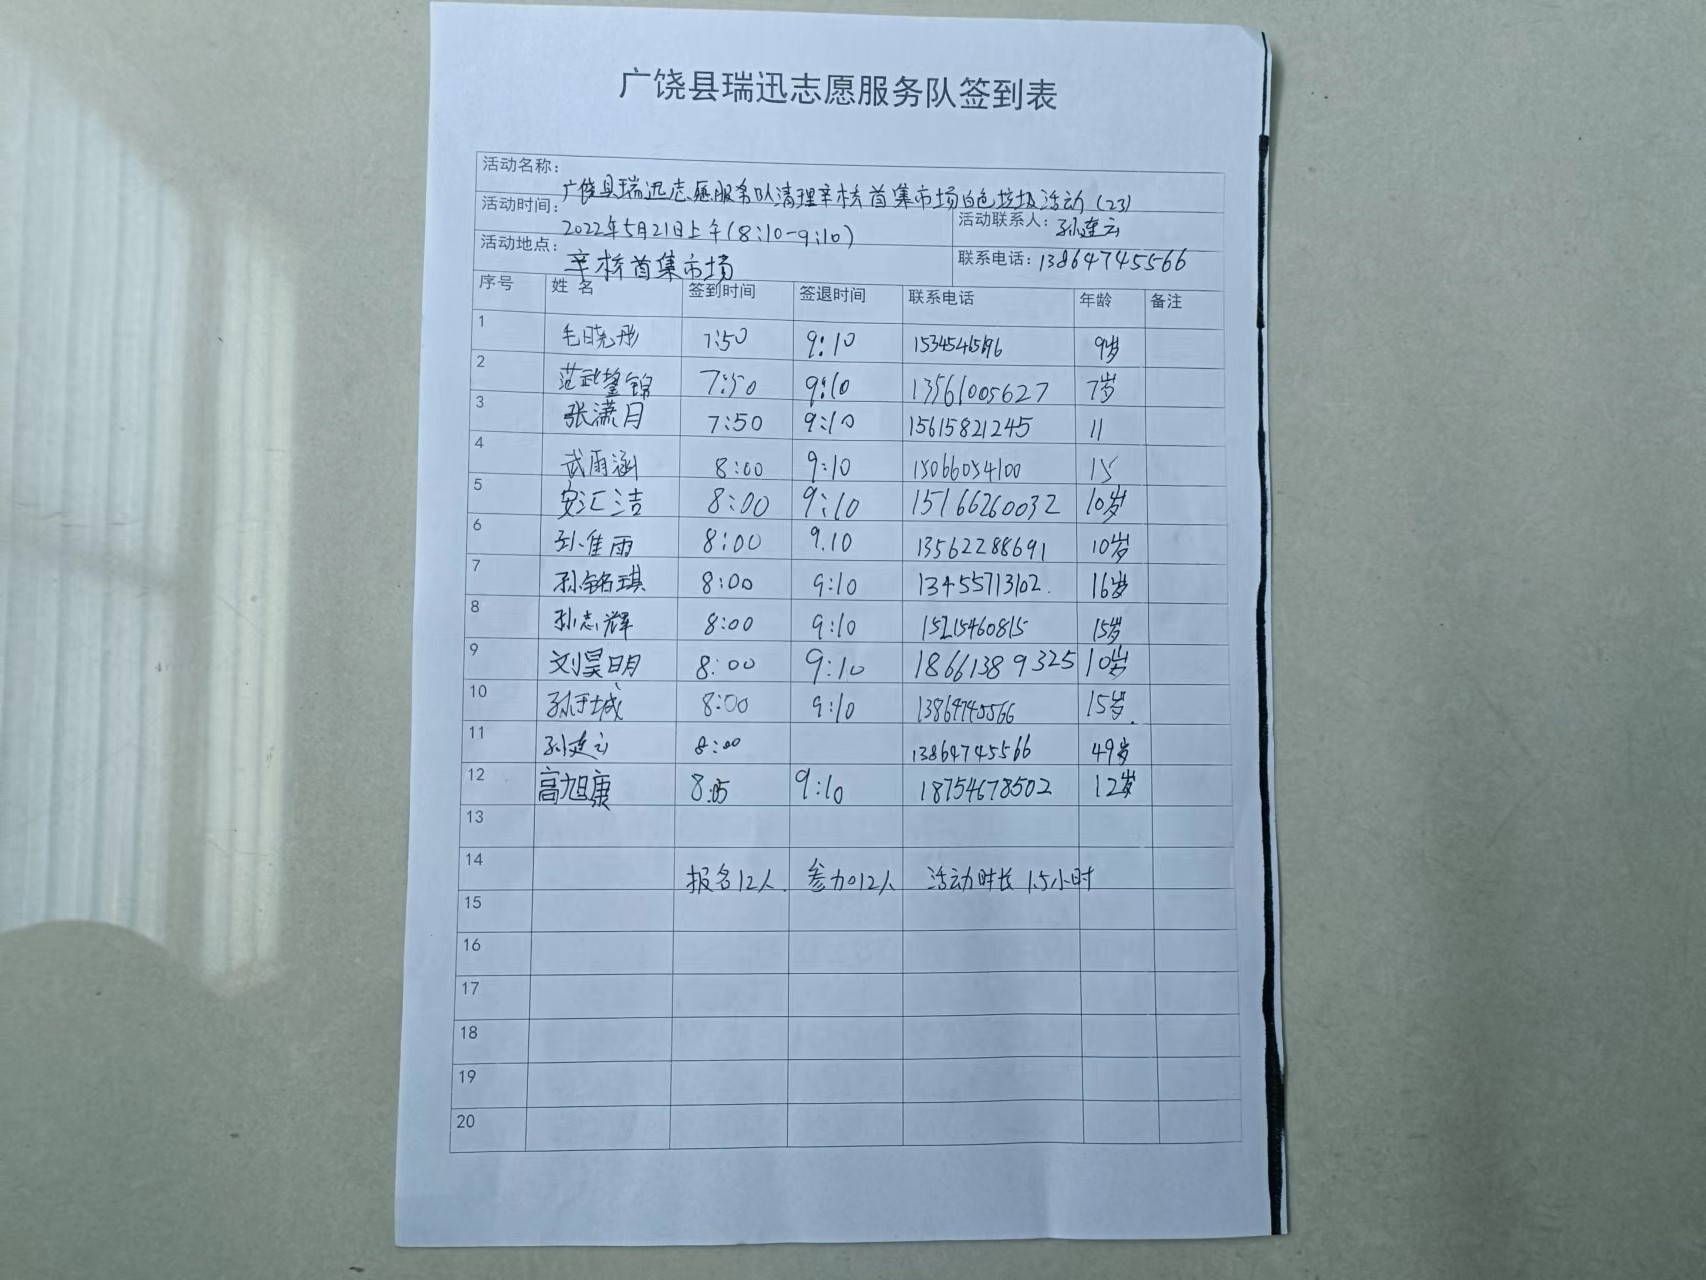 广饶县瑞迅志愿服务队签到表
活动名称: 广饶县瑞迅志愿服务队清理辛桥首集市场白色垃圾活动(23)
活动时间: 2022年5月21日上午(8:10-9:10) 活动联系人: 孙建云
活动地点: 辛桥首集市场 联系电话: 13864745566
序号 姓 名 签到时间 签退时间 联系电话 年龄 备注
1 毛晓彤 7:50 9:10 9岁
2 范武 锦 7:50 9:10 13561005627 7岁
3 张潇月 7:50 9:10 15615821245 11
4 武雨涵 8:00 9:10 15066054100 15
5 安汇洁 8:00 9:10 15166260032 10岁
6 孙佳雨 8:00 9.10 13562288691 10岁
7 孙铭琪 8:00 9:10 13455713102. 16岁
8 孙志辉 8:00 9:10 15215460815 15岁
9 刘昊明 8:00 9:10 18661389325 10岁
10 孙于城 8:00 9:10 13864745566 15岁.
11 孙建云 8:00 13864745566 49岁
12 高旭康 8:05 9:10 18754678502 12岁
13
14 报名12人. 参加12人 活动时长 1.5小时
15
16
17
18
19
20